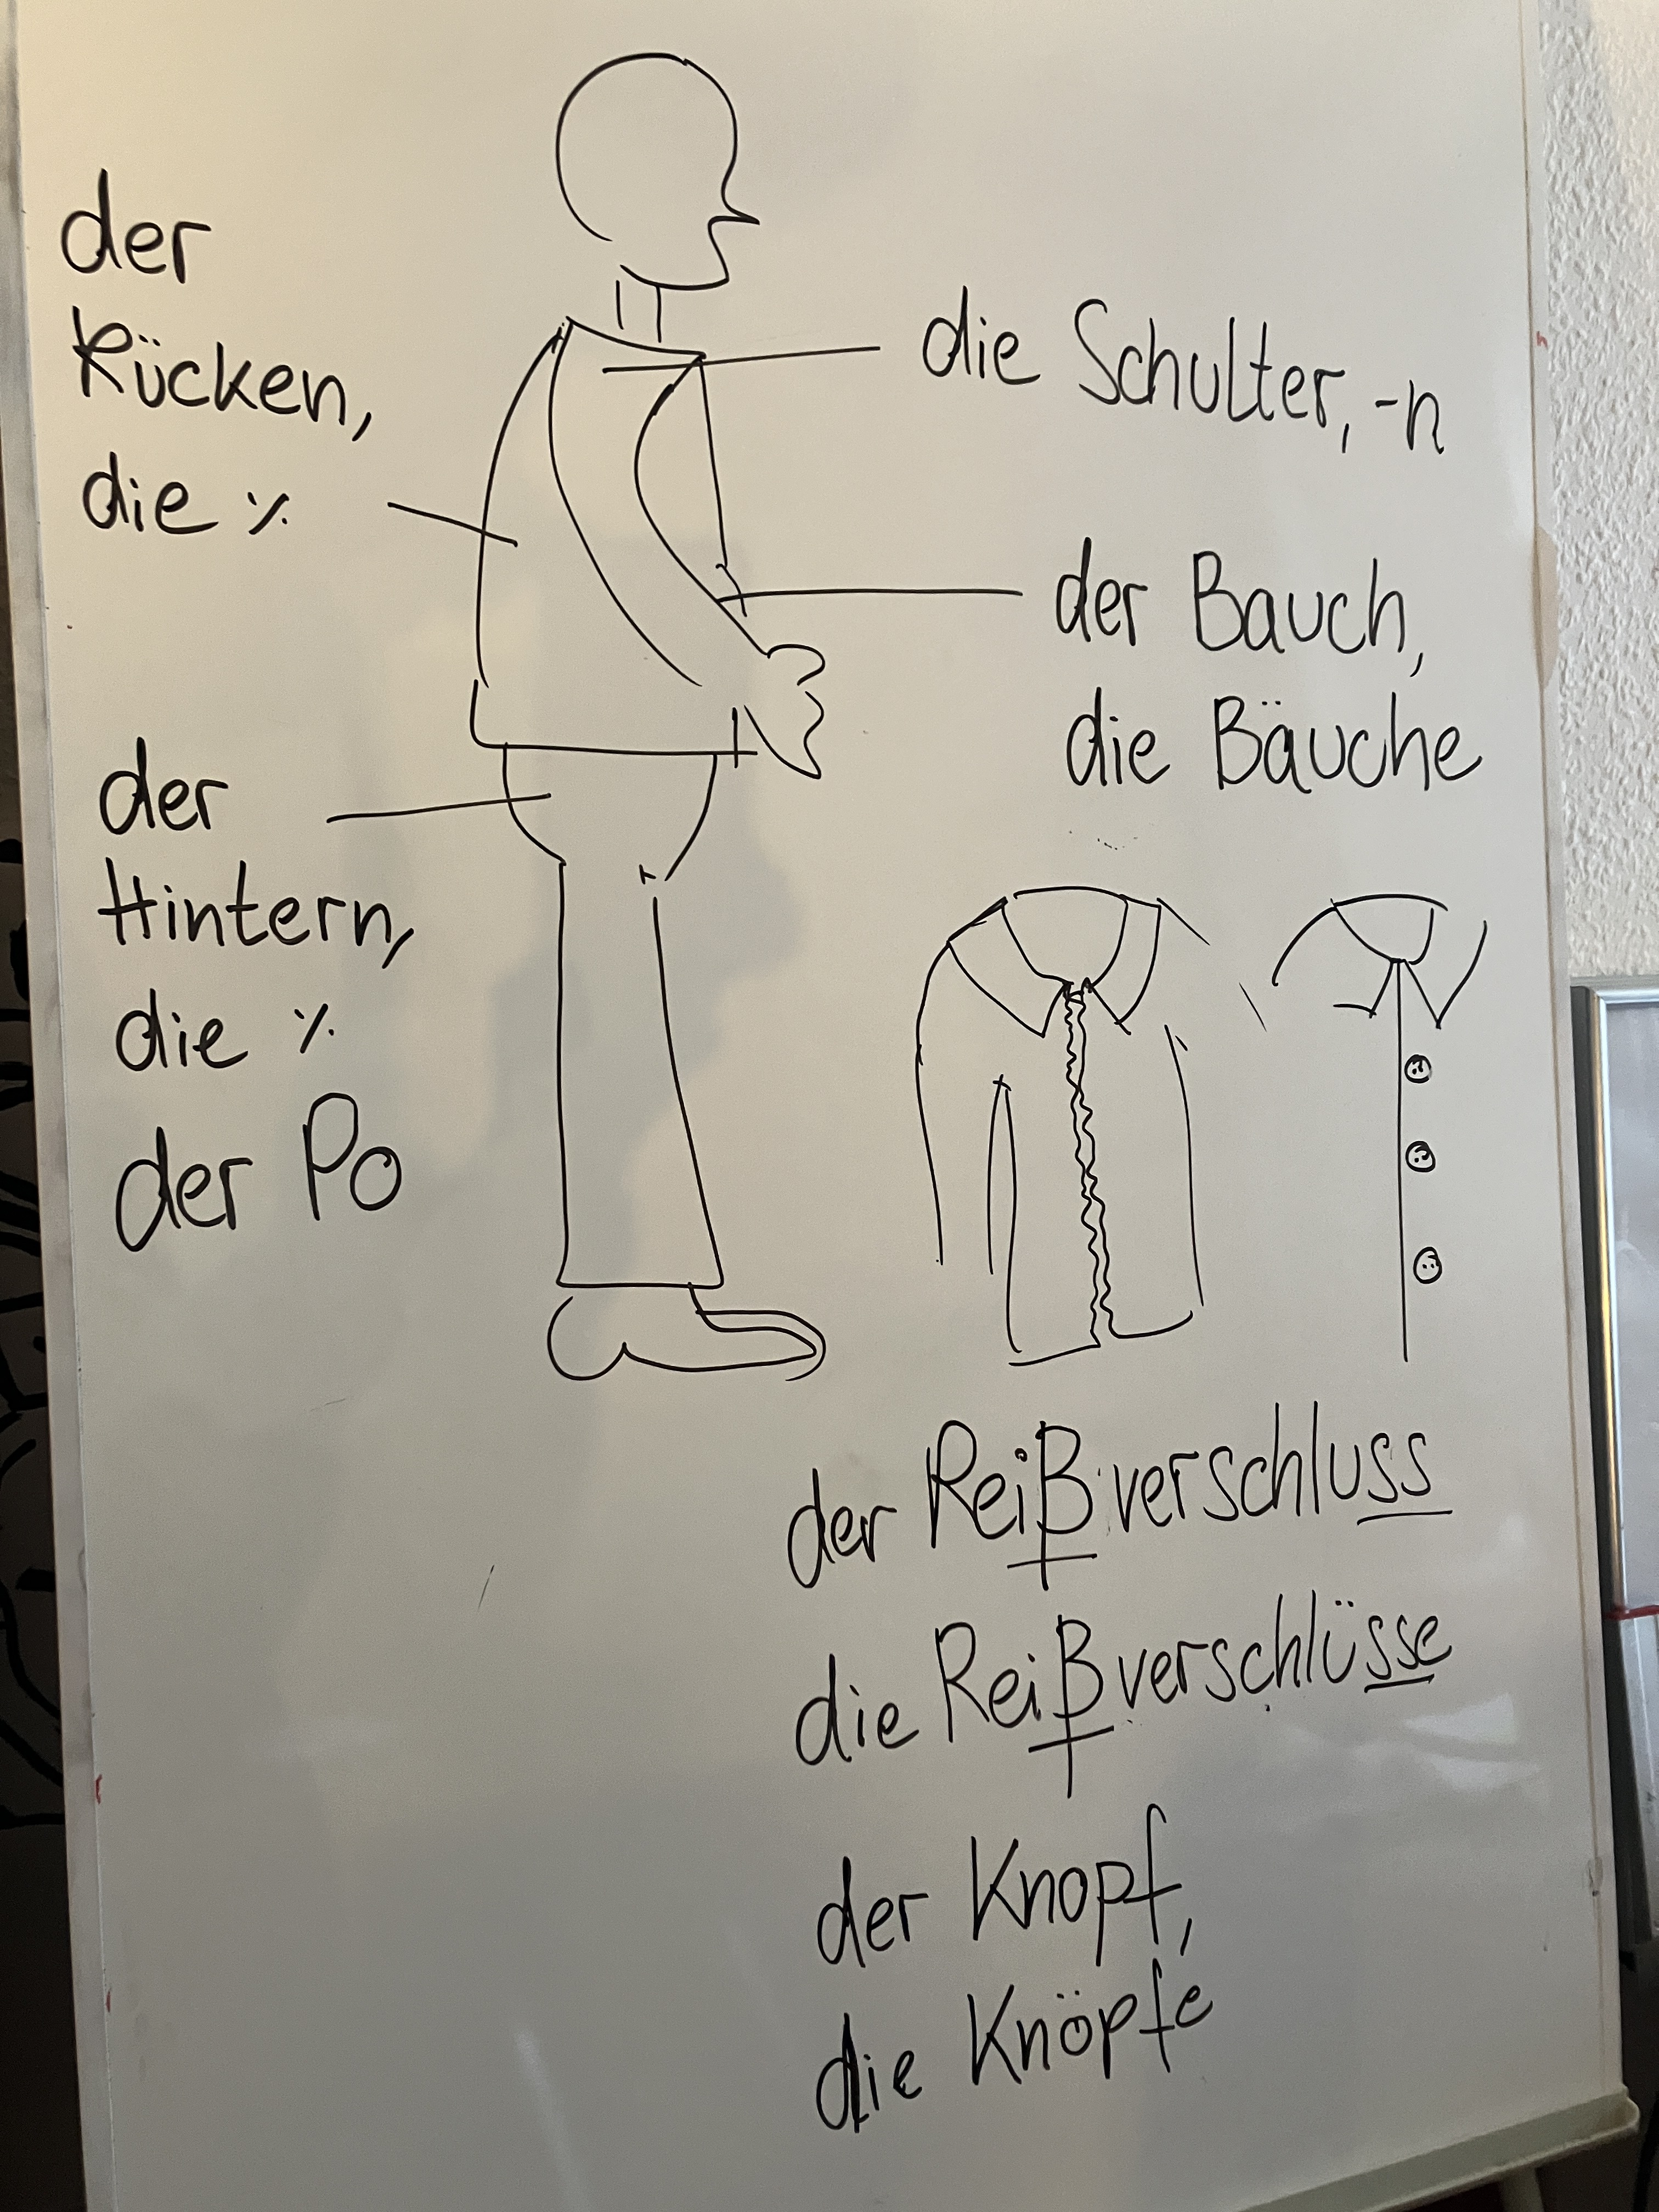 der
Rücken,
die ٪
die Schulter, -n
der Bauch,
die Bäuche
der
Hintern,
die ٪
der Po
der Reißverschluss
die Reißverschlüsse
der Knopf,
die Knöpfe